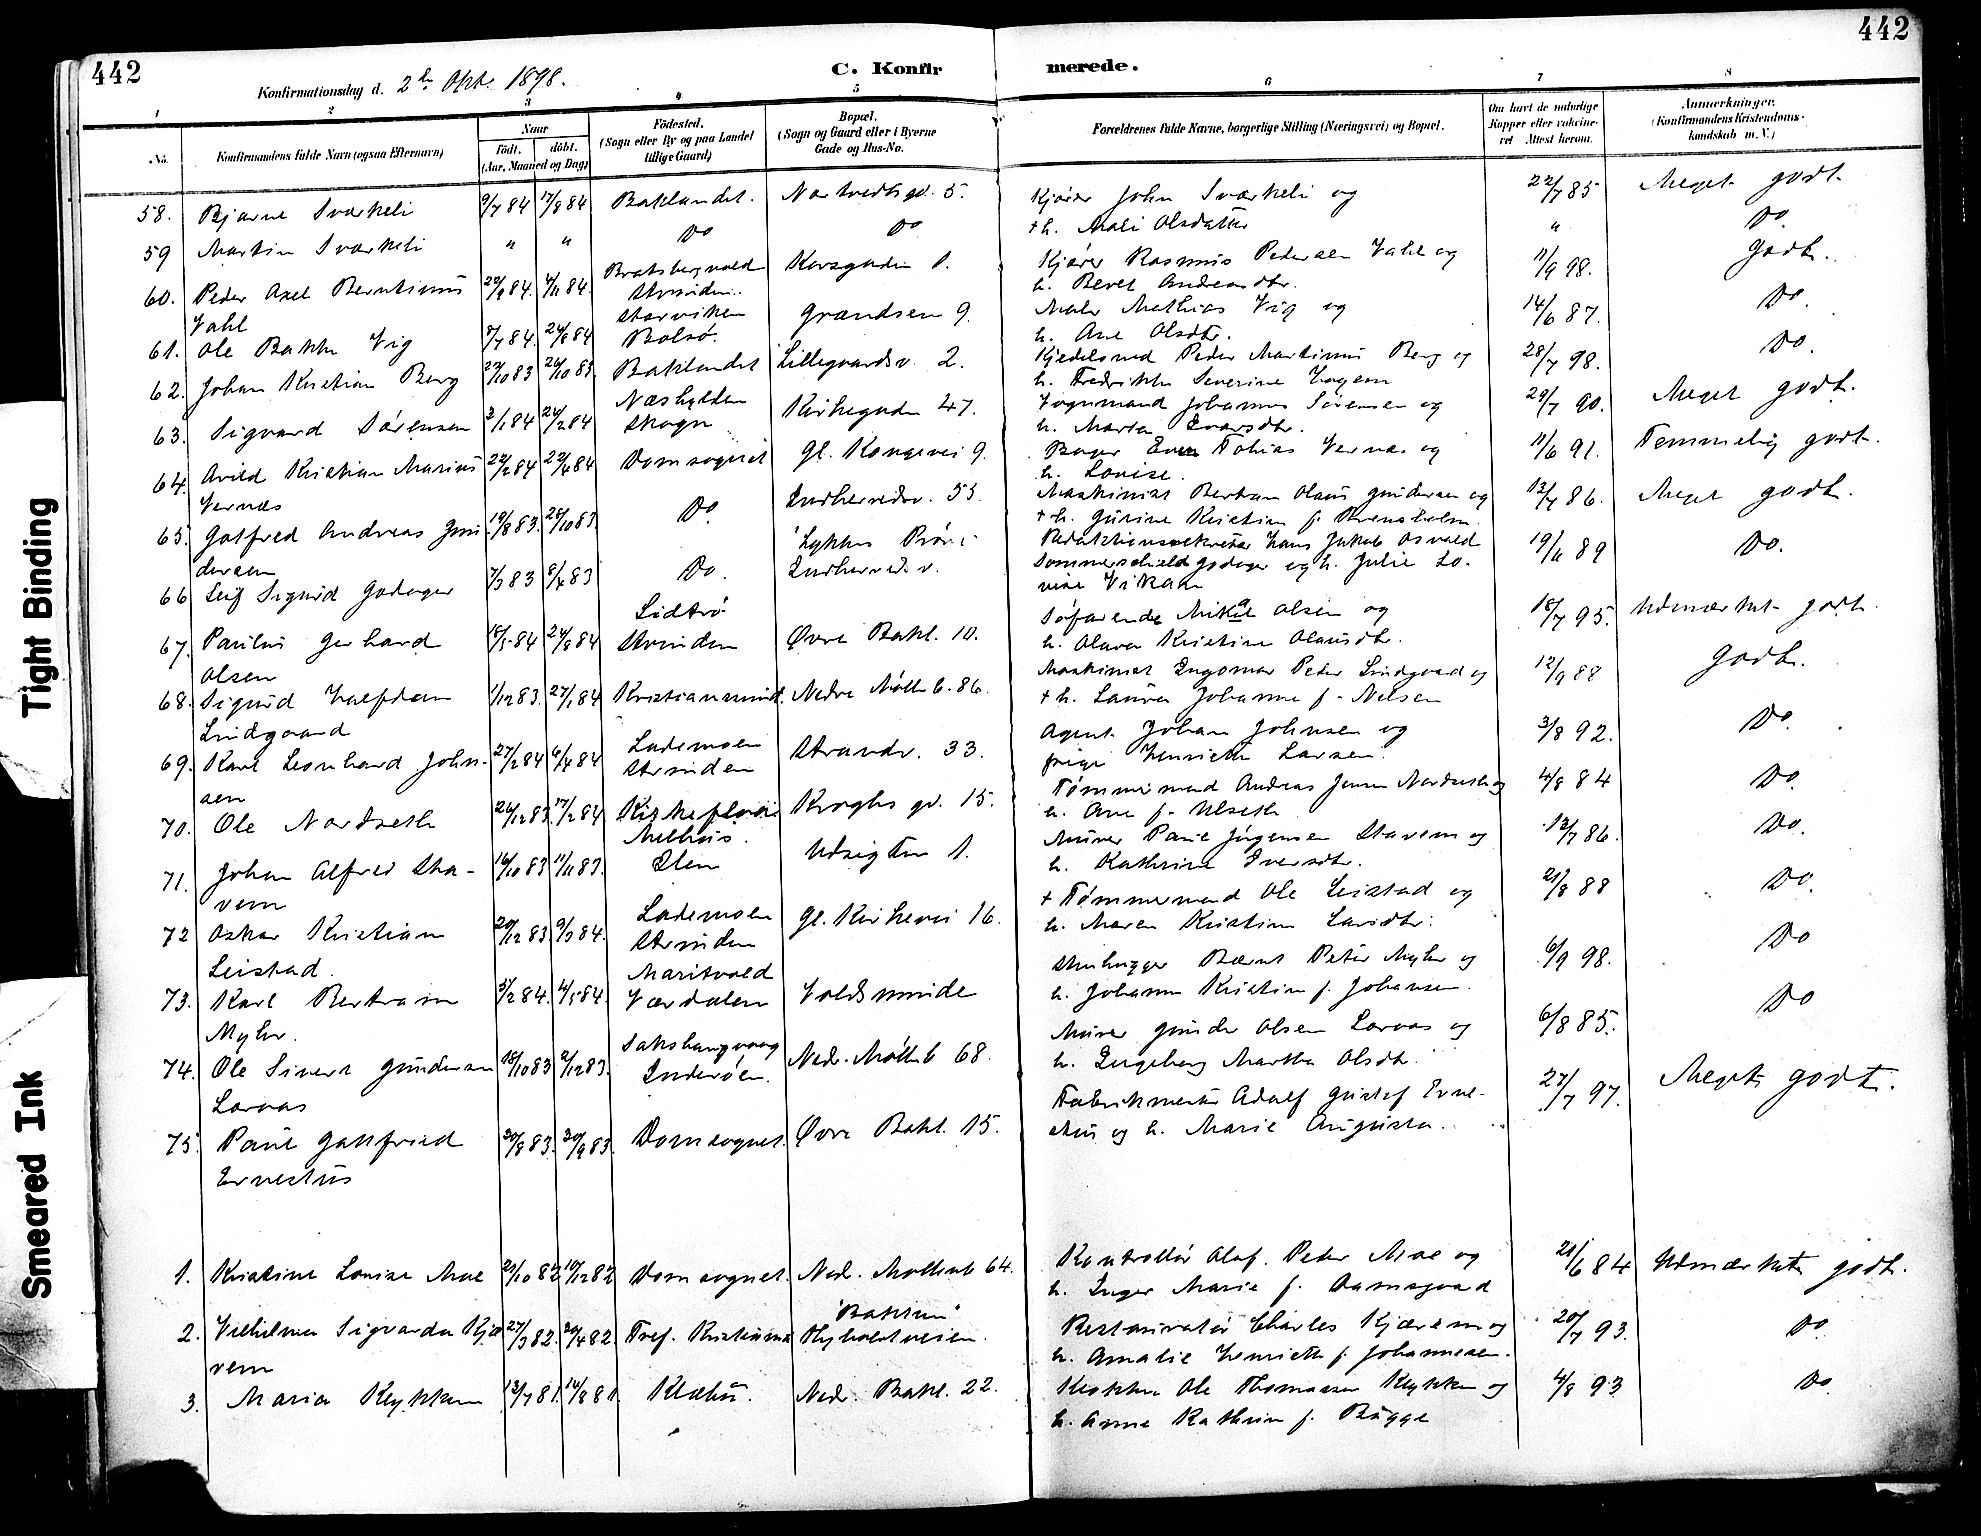 442
442
Konfirmationsdag d. 2de Okt. 1898.
C. Konfirmerede.
1 2 3 4 5 6 7 8
No.
Konfirmandens fulde Navn (ogsaa Efternavn)
Naar
Födt. döbt.
(Aar, Maaned og Dag)
Födested.
(Sogn eller By og paa Landet
tillige Gaard)
Bopæl.
(Sogn og Gaard eller i Byerne
Gade og Hus-No.
Forældrenes fulde Navne, borgerlige Stilling (Næringsvei) og Bopæl.
Om havt de naturlige
Kopper eller vakcine-
ret Attest herom.
Anmærkninger.
(Konfirmandens Kristendoms-
kundskab m. V.)
58. Bjarne Sværkeli 9/7 84 17/8 84 Baklandet. Nostvedtsgd. 5. Kjører John Sværkeli og 22/7 85 Meget godt.
+ h. Mali Olsdatter
59 Martin Sværkeli " " Do Do " Do.
60. Peder Axel Berntinus 4/11 84. Bratsbergvald Korsgaden 1. Kjører Rasmus Pedersen Vahl og 11/9 98. Godt.
Vahl Strinden. h. Beret Andreasdtr.
61. Ole Bakke Vig 7/7 84. 24/8 84 Storviken Grændsen 9. Maler Mathias Vig og 14/6 87. Do.
Bolsø. h. Ane Olsdtr.
62. Johan Kristian Berg 26/10 83. Baklandet Lillegaardsv. 2. Kjedelsmed Peder Martinus Berg og 28/7 98. Do.
h. Fredrikke Severine Hagen
63. Sigvard Sørensen 3/1 84 24/2 84 Næshylden Kirkegaden 47. Vognmand Johannes Sørensen og 29/7 90. Meget godt.
Skogn h. Marta Ivarsdtr.
64. Arild Kristian Marius 22/2 84 22/4 84 Domsognet gl. Kongevei 9. Bager Even Tobias Vernæs og 11/6 91. Temmelig godt.
Vernæs h. Louise.
65. Gotfred Andreas Gun- 19/8 83. 28/10 83 Do. Indherredsv. 53. Maskinist Bertram Olaus Gundersen og 13/7 86. Meget godt.
dersen + h. Gurine Kristine f. Svensholm.
66 Leif Sigurd Godager 7/3 83 8/4 83 Do. Lykkens Prøve Redaktionssekretær Hans Jakob Osvald 19/11 89 Do.
Indherredsv. Sommerschield Godager og h. Julie Lo-
vise Vikan
67. Paulus Gerhard 18/5 84 24/8 84 Lidtrø Øvre Bakl. 10. Søfarende Mikal Olsen og 18/7 95. Udmærket godt.
Olsen Strinden h. Olava Kristine Olausdtr.
68. Sigurd Halfdan 1/12 83. 27/1 84 Kristianssund. Nedre Møllenb. 86. Maskinist Ingomar Peter Lindgaard og 12/9 88 Godt.
Lindgaard + h. Laura Johanne f. Nelsen
69. Karl Leonhard John- 27/2 84 6/4 84 Lademoen Strandv. 33. Agent Johan Johnsen og 3/8 92. Do.
sen Strinden pige Henriette Larsen.
70. Ole Nordseth 26/12 83. 17/2 84 Kirkeflaten Kroghs gd. 15. Tømmermand Andreas Jensen Nordseth og 4/8 84 Do.
Melhus. h. Ane f. Ulseth
71. Johan Alfred Sta- 16/10 83 11/11 83. Ilen Udsigten 1. Murer Paul Jørgensen Stavem og 13/7 86. Do.
vem h. Kathrine Iversdtr.
72 Oskar Kristian 20/12 83. 9/3 84. Lademoen gl. Kirkevei 16. + Tømmermand Ole Leistad og 21/8 88 Do.
Leistad. Strinden h. Maren Kristine Larsdtr.
73. Karl Bertram 3/2 84. 4/5 84. Maritvold Voldsminde Stenhugger Bernt Peter Myhr og 6/9 98. Do
Myhr. Værdalen h. Johanna Kristine f. Johansen.
74. Ole Sivert Gundersen 18/10 83 2/12 83. Sakshaugvaag Nedr. Møllenb 68. Murer Gunder Olsen Lorvas og 6/8 85. Do
Lorvas Inderøen. h. Ingeborg Martha Olsdtr.
75. Paul Gottfried 20/8 83. 30/9 83 Domsognet. Øvre Bakl. 15. Fabrikmester Adolf Gustaf Erne- 27/7 97. Meget godt.
Ernestus stus og h. Marie Augusta.
1. Kristine Louise Moe 21/10 82 10/12 82 Domsognet. Ned. Møllenb 64. Kontrollør Olaf Peder Moe og 21/6 84 Udmærket godt.
h. Inger Marie f. Damsgaard
2. Vilhelmia Sigvarda Kjæ 27/3 82. 30/4 82 Tref. Kristiania "Bakken" Restauratør Charles Kjærem og 20/7 93. Do
rem Thyholtveien. h. Amalie Henriette f. Johannesen.
3. Maria Klykken 13/7 81. 14/8 81. Klæbu. Nedr. Bakl. 22. Klokker Ole Thomassen Klykken og 4/8 93 Do.
h. Anne Kathrine f. Bugge
Tight Binding
Smeared Ink